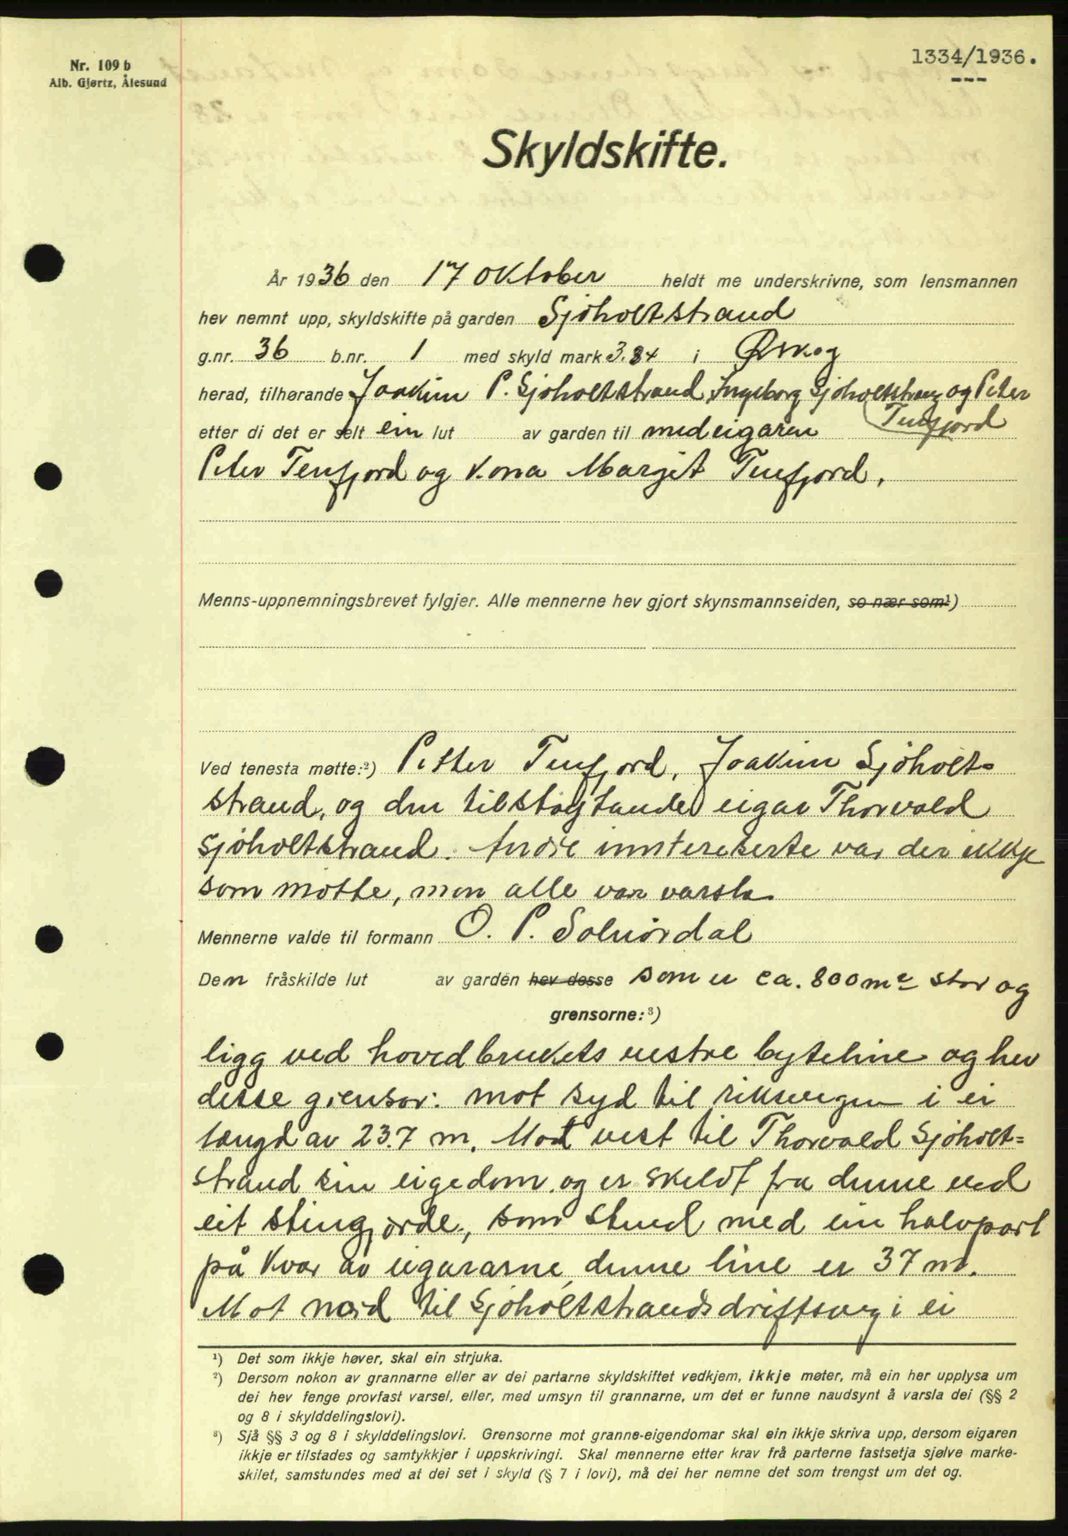 Nr. 109 b
Alb. Gjørtz, Ålesund
1334/1936.
Skyldskifte.
År 1936 den 17 oktober heldt me underskrivne, som lensmannen
hev nemnt upp, skyldskifte på garden Sjöholtstrand
g.nr. 36 b.nr. 1 med skyld mark 3.84 i Ørskog
herad, tilhørande Joakim P. Sjöholtstrand, Ingeborg Sjöholtstrand og Peter
Tenfjord
etter di det er selt ein lut av garden til medeigaren
Peter Tenfjord og kona Margit Tenfjord.
Menns-uppnemningsbrevet fylgjer. Alle mennerne hev gjort skynsmannseiden, so nær som¹)
Ved tenesta møtte:²) Petter Tenfjord, Joakim Sjöholt-
strand, og den tilstøytande eigar Thorvald
Sjöholtstrand. Andre inntereserte var der ikkje
som motte, men alle var varsla
Mennerne valde til formann O. P. Solnördal
Den fråskilde lut av garden hev desse som er ca. 800 m² stor og
grensorne:³)
ligg ved hovedbrukets vestre byteline og hev
desse grensor: mot syd til riksvegen i ei
længd av 23.7 m. Mot vest til Thorvald Sjöholt=
strand sin eigedom, og er skeldt fra denne ved
eit stingjorde, som stend med ein halvpart
på kvar av eigararne, denne line er 37 m.
Mot nord til Sjöholtstrandsdriftsveg i ei
¹) Det som ikkje høver, skal ein strjuka.
²) Dersom nokon av grannarne eller av dei partarne skyldskiftet vedkjem, ikkje møter, må ein her upplysa um
dei hev fenge provfast varsel, eller, med umsyn til grannarne, um det er funne naudsynt å varsla dei (§§ 2
og 8 i skylddelingslovi).
³) Sjå §§ 3 og 8 i skylddelingslovi. Grensorne mot granne-eigendomar skal ein ikkje skriva upp, dersom eigaren
ikkje er tilstades og samtykkjer i uppskrivingi. Skal mennerne etter krav frå parterne fastsetja sjølve marke-
skilet, samstundes med at dei set i skyld (§ 7 i lovi), må dei her nemne det som trengst um det og.